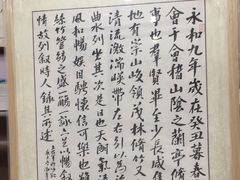 永和九年歲在癸丑暮春
會于會稽山陰之蘭亭脩
事也群賢畢至少長咸集
地有崇山峻領茂林脩竹又
清流激湍暎帶左右引以為流
曲水列坐其次是日也天朗氣
風和暢娛目騁懷信可樂也
絲竹管絃之盛一觴一詠亦足以暢叙
情故列叙時人錄其所述